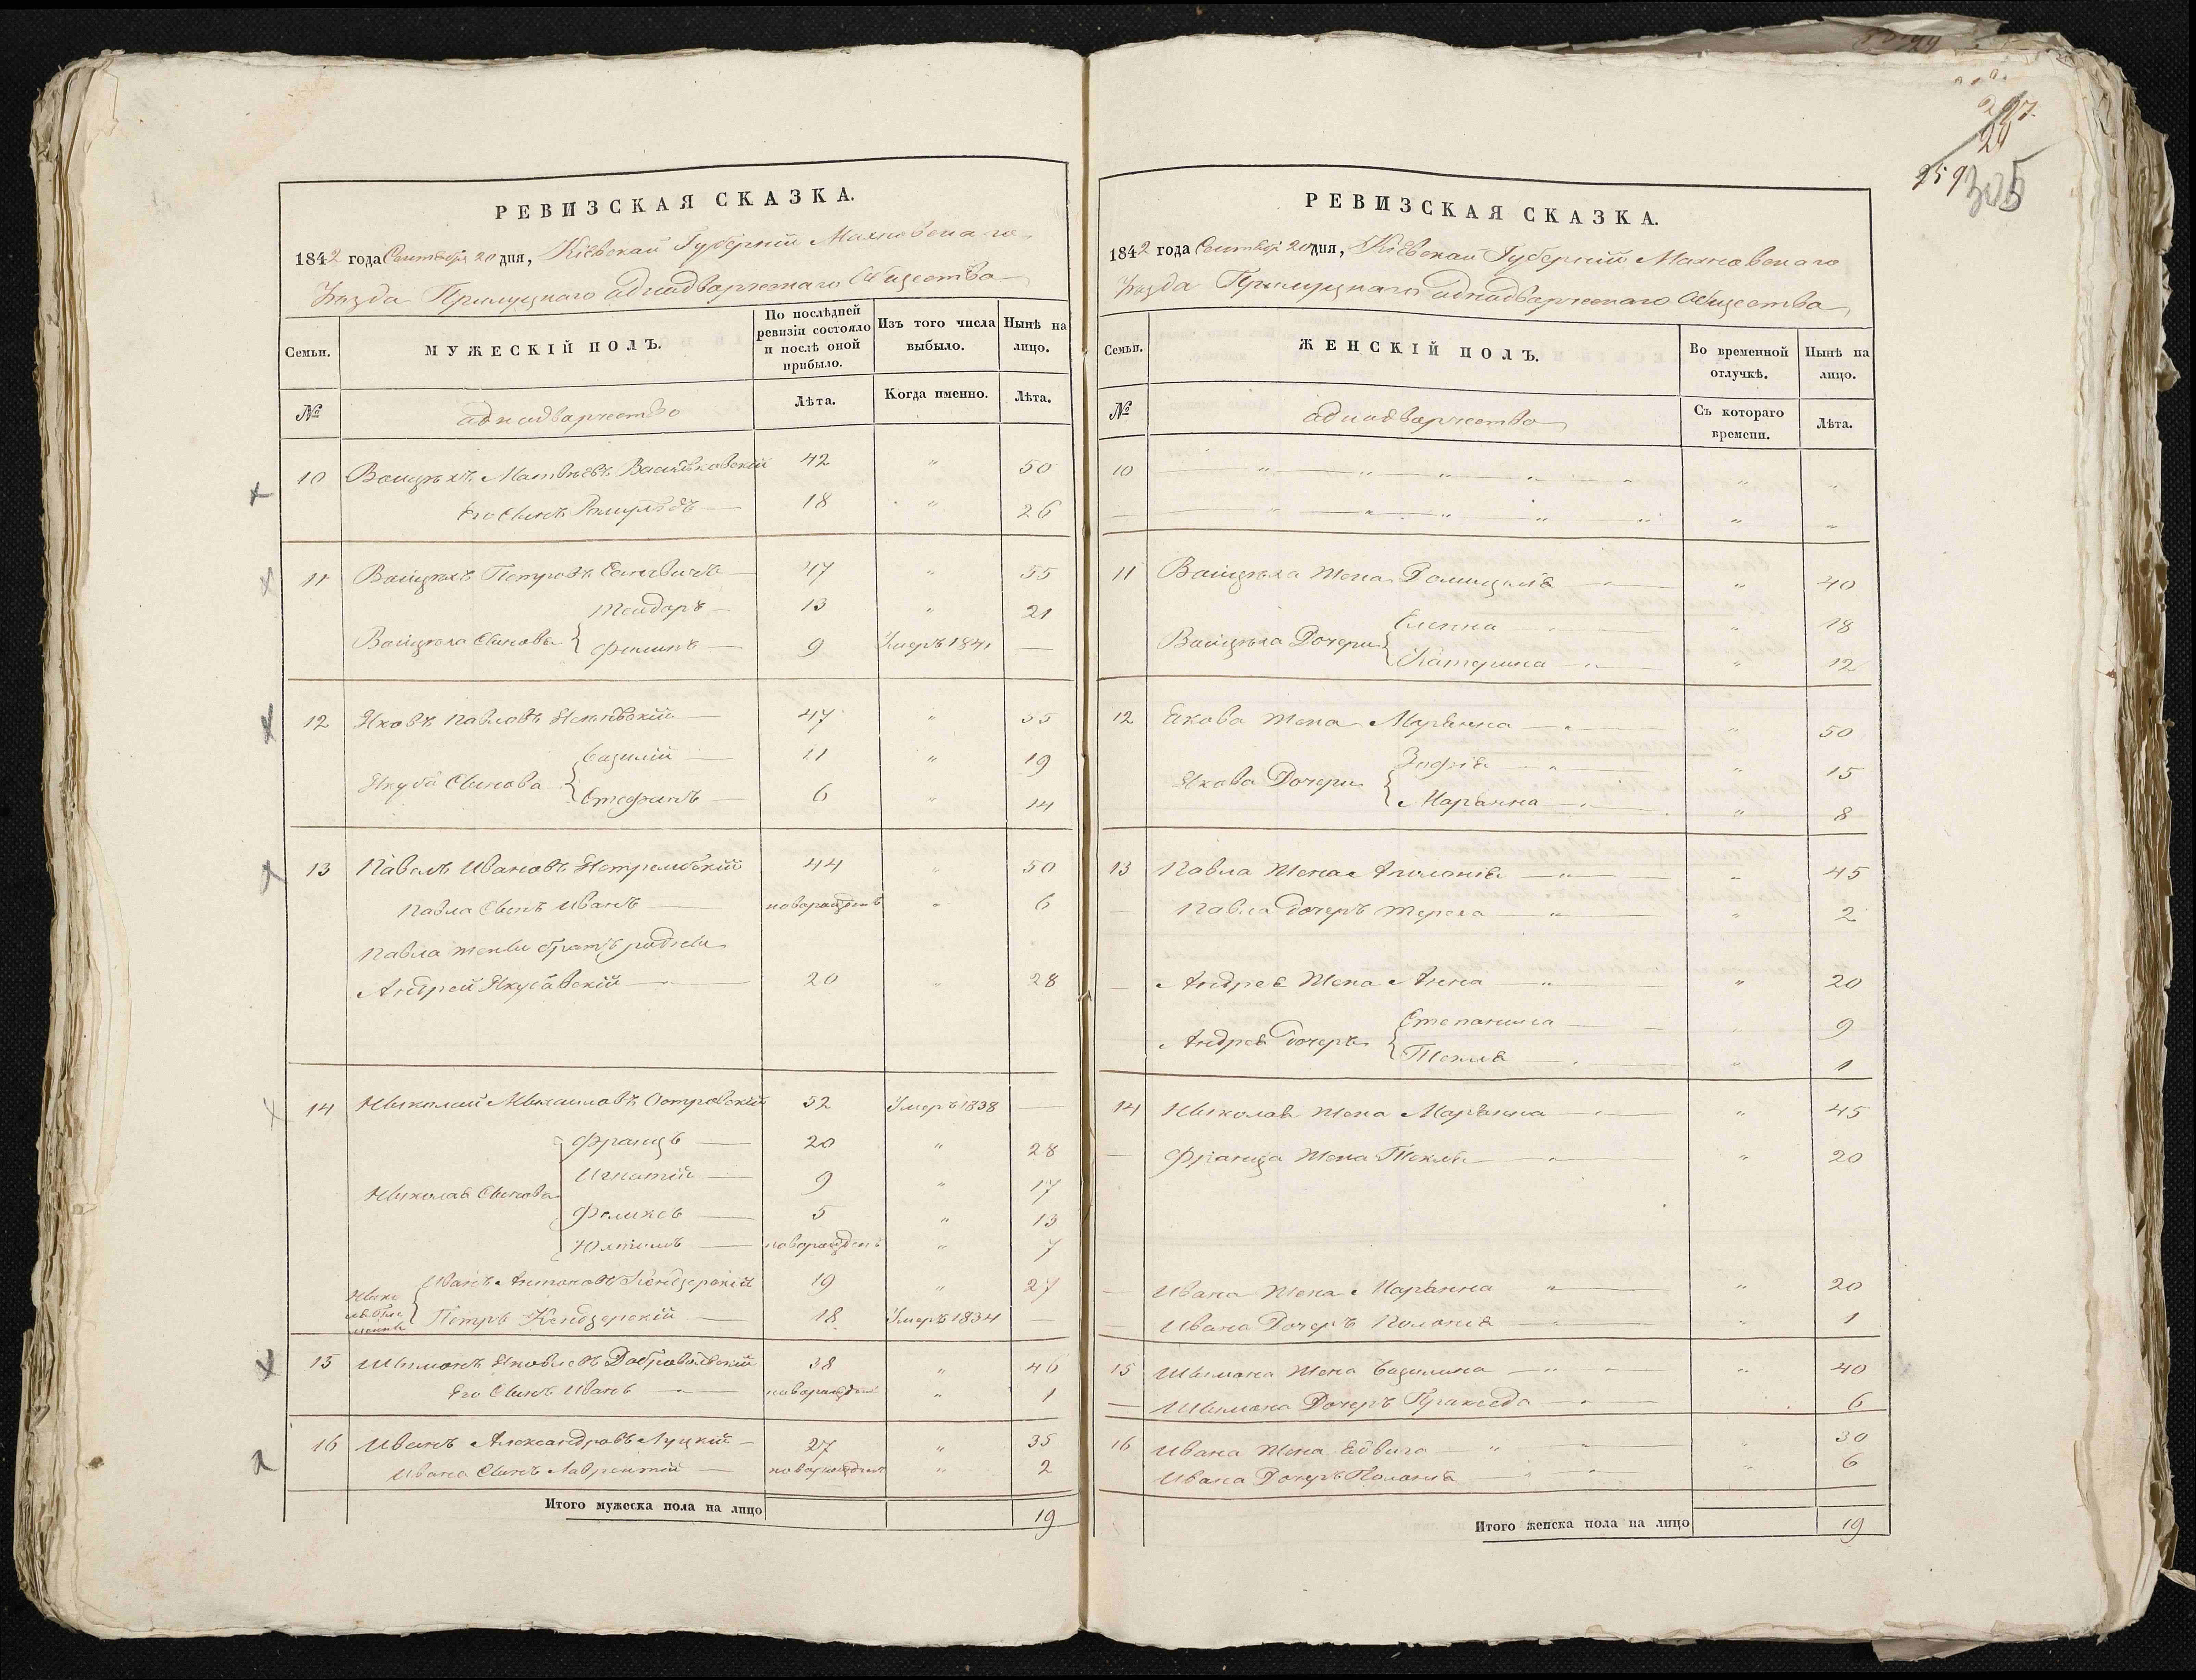 297
20
259 305
РЕВИЗСКАЯ СКАЗКА.
1842 года Сентября 20 дня, Кіевской Губерніи Махновскаго
Уѣзда Прилуцкаго однодворческаго Общества
Семьи.
МУЖЕСКІЙ ПОЛЪ.
По послѣдней ревизіи состояло и послѣ оной прибыло.
Изъ того числа выбыло.
Нынѣ на лицо.
№
однодворчество
Лѣта.
Когда именно.
Лѣта.
10 Войцѣхъ Матвѣевъ Васильковскій 42 " 50
Его Сынъ 18 " 26
11 Войцѣхъ Петровъ 47 " 55
Теодоръ 13 " 21
Войцѣха Сынова { Филипъ 9 Умеръ 1841 —
12 Яковъ Павловъ 47 " 55
Базилій 11 " 19
Якуба Сынова { Стефанъ 6 " 14
13 Павелъ Ивановъ Ястрембскій 44 " 50
Павла Сынъ Иванъ новорожденъ " 6
Павла жены братъ родны
Андрей Якубовскій 20 " 28
14 Николай Михаиловъ Островскій 52 Умеръ 1838 —
Францъ 20 " 28
Игнатій 9 " 17
Николая Сынова
Феликсъ 5 " 13
новорожденъ " 7
Иванъ Антоновъ Кендзерскій 19 " 27
Петръ Кендзерскій 18 Умеръ 1834 —
15 Шимонъ Яковлевъ Добровольскій 38 " 46
Его Сынъ Иванъ новорожденъ " 1
16 Иванъ Александровъ Луцкій 27 " 35
Ивана Сынъ Лаврентій новорожденъ " 2
Итого мужеска пола на лицо 19
РЕВИЗСКАЯ СКАЗКА.
1842 года Сентября 20 дня, Кіевской Губерніи Махновскаго
Уѣзда Прилуцкаго однодворческаго Общества
Семьи.
ЖЕНСКІЙ ПОЛЪ.
Во временной отлучкѣ.
Нынѣ на лицо.
№
однодворчество
Съ котораго времени.
Лѣта.
10 " " " " " " "
— " " " " " " "
11 Войцѣха жена Домицеля " 40
Еленна " 18
Войцѣха Дочери { Катерина " 12
12 Якова жена Маріянна " 50
Зофія " 15
Якова Дочери { Маріянна " 8
13 Павла жена Аполонія " 45
— Павла дочеръ Тереса " 2
— Андрея жена Анна " 20
Степанида " 9
Андрея дочери { Текля " 1
14 Николая жена Маріянна " 45
— Франца жена Текля " 20
— Ивана жена Маріянна " 20
— Ивана Дочеръ Полонія " 1
15 Шимона жена Базилина " 40
— Шимона Дочеръ Праксeда 6
16 Ивана жена Едвига " 30
Ивана Дочеръ Полонія " 6
Итого женска пола на лицо 19